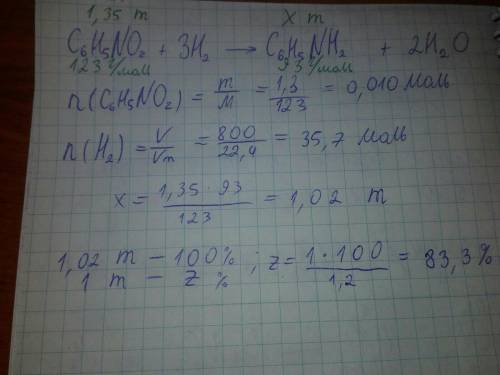 1,35 т    x т
C₆H₅NO₂ + 3H₂ ⟶ C₆H₅NH₂ + 2H₂O
123 г/моль    93 г/моль
n(C₆H₅NO₂) = m/M = 1,3/123 = 0,010 моль
n(H₂) = V/Vm = 800/22,4 = 35,7 моль
x = 1,35·93/123 = 1,02 т
1,02 т – 100%
1 т – z % ; z = 1·100/1,2 = 83,3%